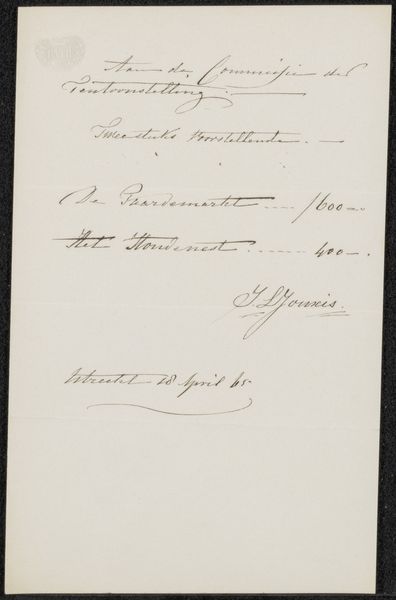 Aan de Commissie der
Tentoonstelling.
Twee stuks voorstellende.
De Paardemarkt ---- 1600 -.
Het Hondenest ------ 400 -.
J L Jonxis.
Utrecht 28 April 65